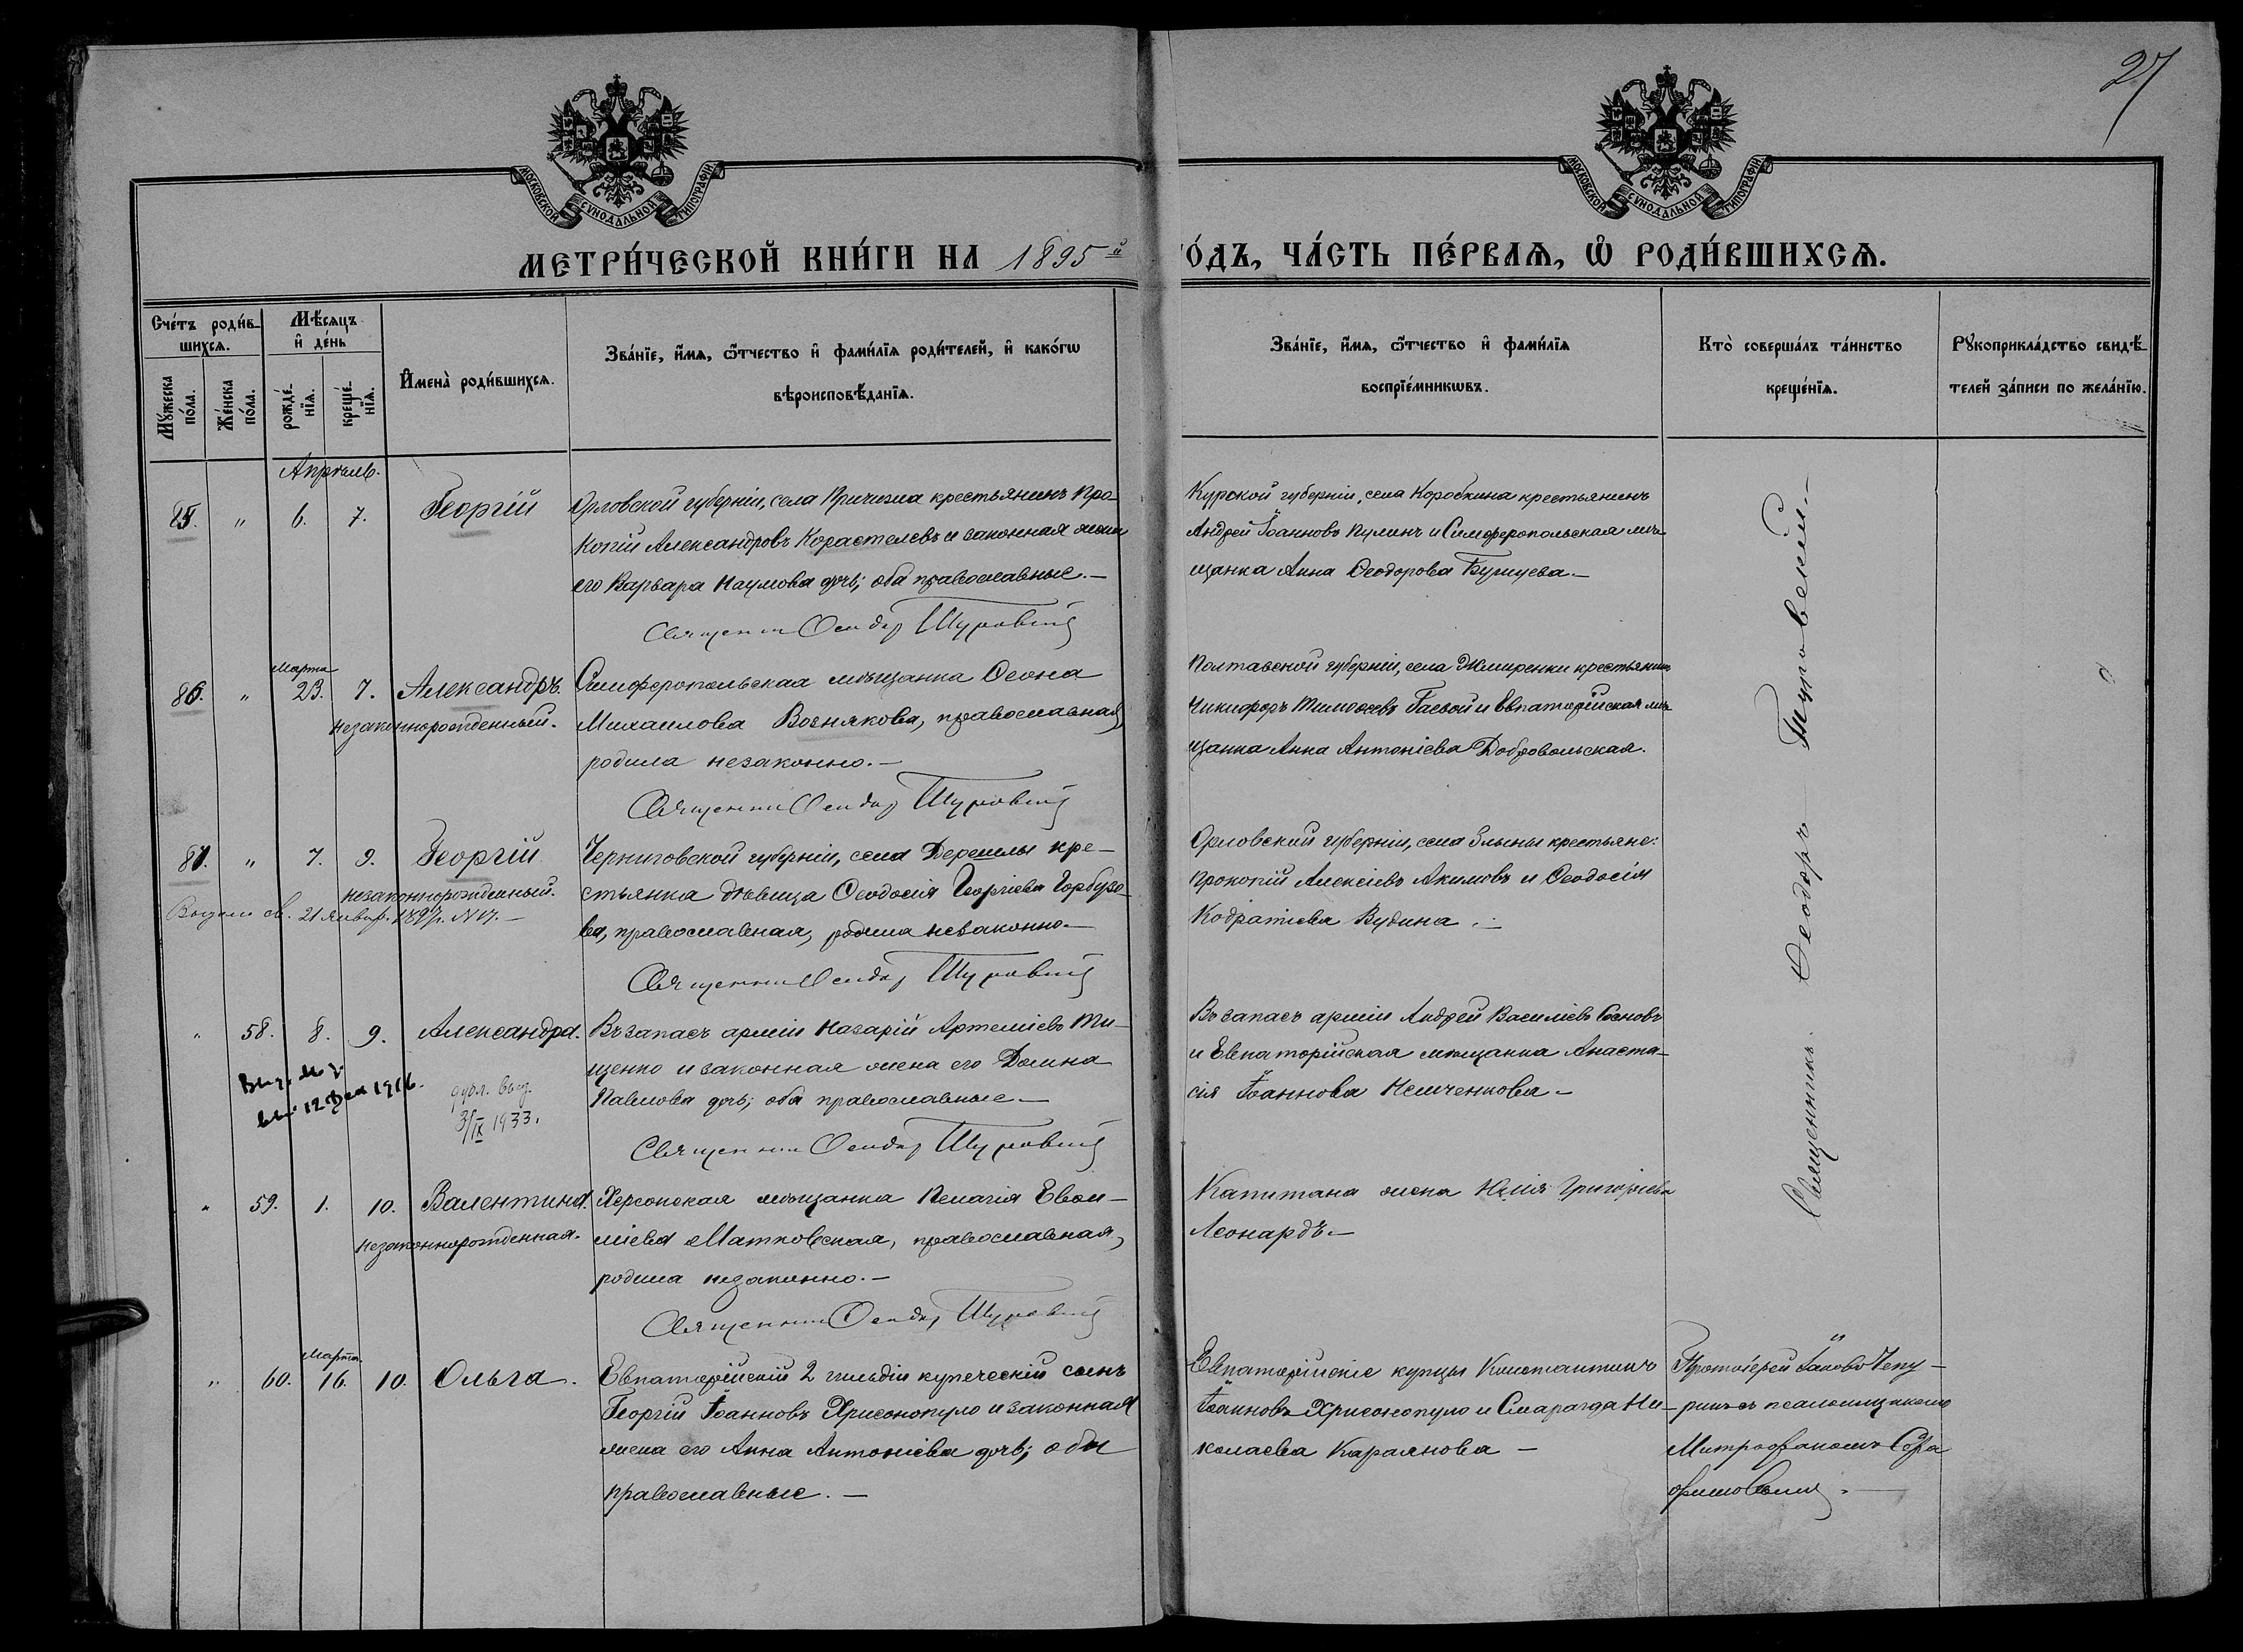 27
МОСКОВСКОЙ СѴНОДАЛЬНОЙ ТИПОГРАФІИ
МОСКОВСКОЙ СѴНОДАЛЬНОЙ ТИПОГРАФІИ
МЕТРИ́ЧЕСКОЙ КНИ́ГИ НА 1895й
ГО́ДЪ, ЧА́СТЬ ПЕ́РВАЯ, Ѡ РОДИ́ВШИХСЯ.
Сче́тъ роди́в-
шихся.
Мѣсяцъ
и де́нь
Мꙋ́жеска
по́ла.
Же́нска
по́ла.
рожде́-
нїя.
креще́-
нїя.
Имена̀ роди́вшихся.
Зва́нїе, и́мя, ѿтчество и фами́лїя роди́телей, и како́гѡ
вѣроисповѣданїя.
Зва́нїе, и́мя, ѿтчество и фами́лїя
воспрїе́мникѡвъ.
Кто̀ соверша́лъ та́инство
креще́нїя.
Рꙋкоприкла́дство свидѣ-
телей за́писи по жела́нїю.
Апрѣль.
85. " 6. 7. Георгій
Орловской губерніи, села Кричина крестьянинъ Про-
копій Александровъ Корастелевъ и законная жена
его Варвара Наумова дочь; оба православные.—
Священникъ Ѳеодоръ
Курской губерніи, села Коробкина крестьянинъ
Андрей Іоанновъ Пулинъ и Симферопольская мѣ-
щанка Анна Ѳеодорова
Марта
86. " 23. 7. Александръ.
незаконнорожденный.
Симферопольская мѣщанка Ѳеона
Михаилова Вознякова, православная,
родила незаконно.—
Священникъ Ѳеодоръ
Полтавской губерніи, села Жмиренки крестьянинъ
Никифоръ Тимоѳеевъ Гаевой и Евпаторійская мѣ-
щанка Анна Антоніева Добровольская.
87. " 7. 9. Георгій
незаконнорожденный.
св. 21 январ. 1897г. №
Черниговской губерніи, села кре-
стьянка дѣвица Ѳеодосія Георгіева Горбузо-
ва, православная, родила незаконно.—
Священникъ Ѳеодоръ
Орловской губерніи, села Злыни крестьяне:
Прокопій Алексіевъ Акимовъ и Ѳеодосія
Кодратіева Вудина.—
" 58. 8. 9. Александра.
12 1916.
дубл. выд.
3/IX 1933.
Въ запасѣ арміи Назарій Артеміевъ Ти-
щенко и законная жена его Домна
Павлова дочь; оба православные.—
Священникъ Ѳеодоръ
Въ запасѣ арміи Андрей Василіевъ
и Евпаторійская мѣщанка Анаста-
сія Іоаннова Немченкова—
" 59. 1. 10. Валентина.
незаконнорожденная.
Херсонская мѣщанка Пелагія Евѳи-
міева Матковская, православная,
родила незаконно.—
Священникъ Ѳеодоръ
Капитана жена Юлія Григоріева
Леонардъ.—
Священникъ Ѳеодоръ
Марта
" 60. 16. 10. Ольга.
Евпаторійскій 2 гильдіи купеческій сынъ
Георгій Іоанновъ Хрисонопуло и законная
жена его Анна Антоніева дочь; оба
православные.—
Евпаторійскіе купцы Константинъ
Іоанновъ Хрисонопуло и Смарагда Ни-
колаева Караянова—
Протоіерей Іаковъ Чепу-
ринъ съ псаломщикомъ
Митрофаномъ